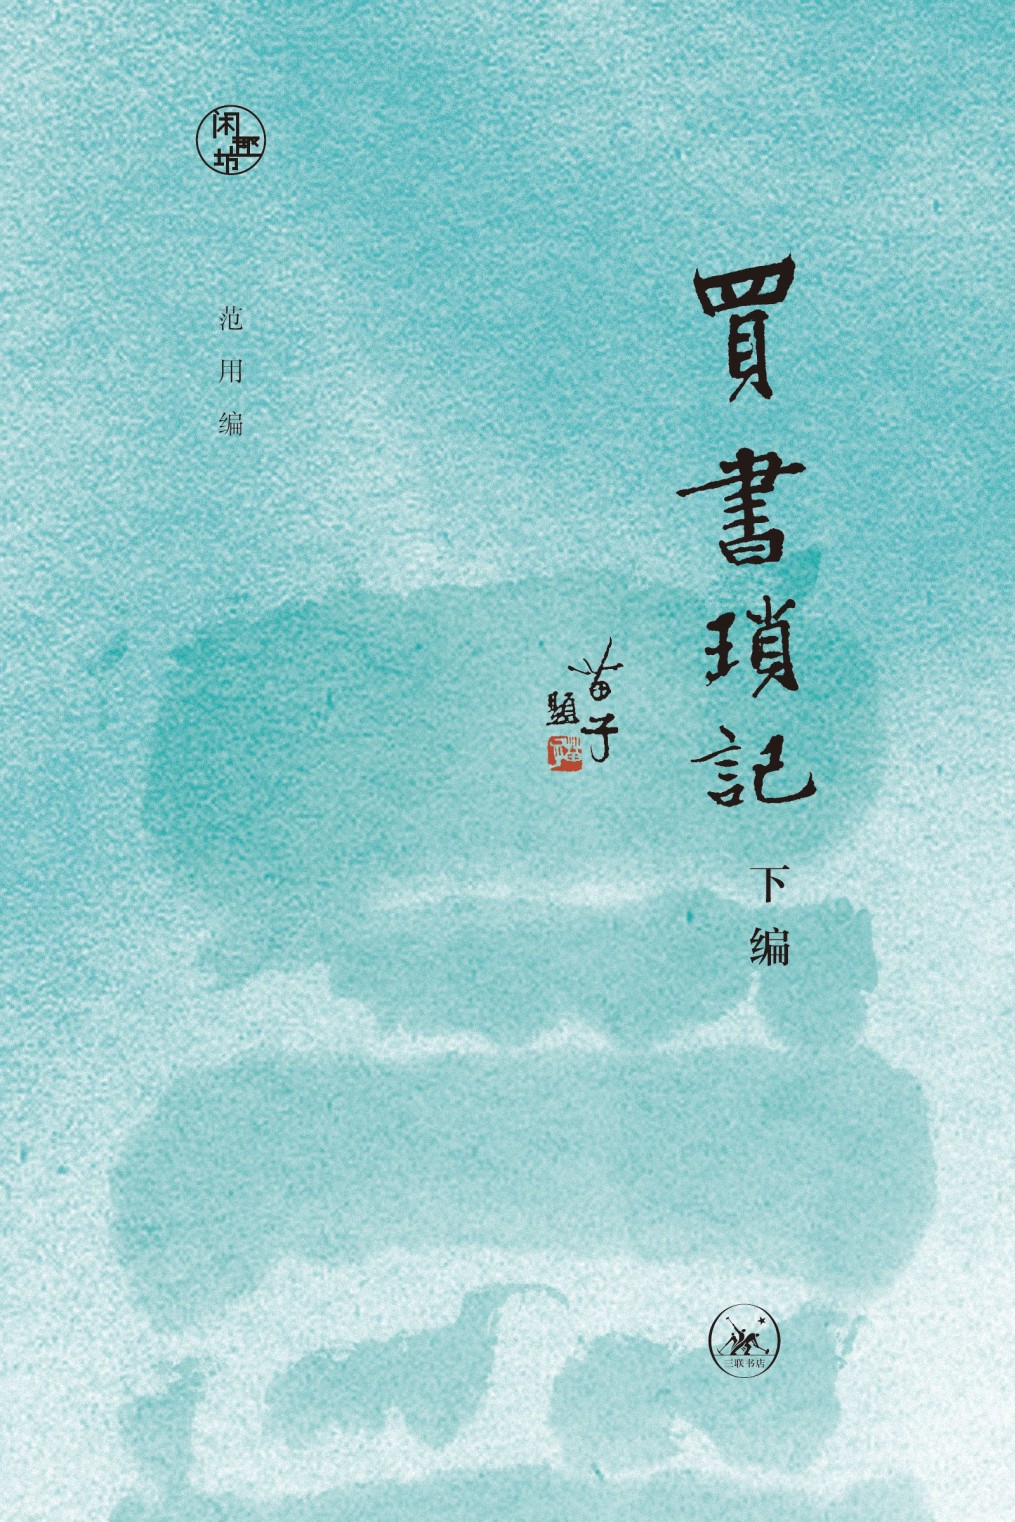 買書瑣記
下编
苗子
題
闲趣坊
范用编
三联书店